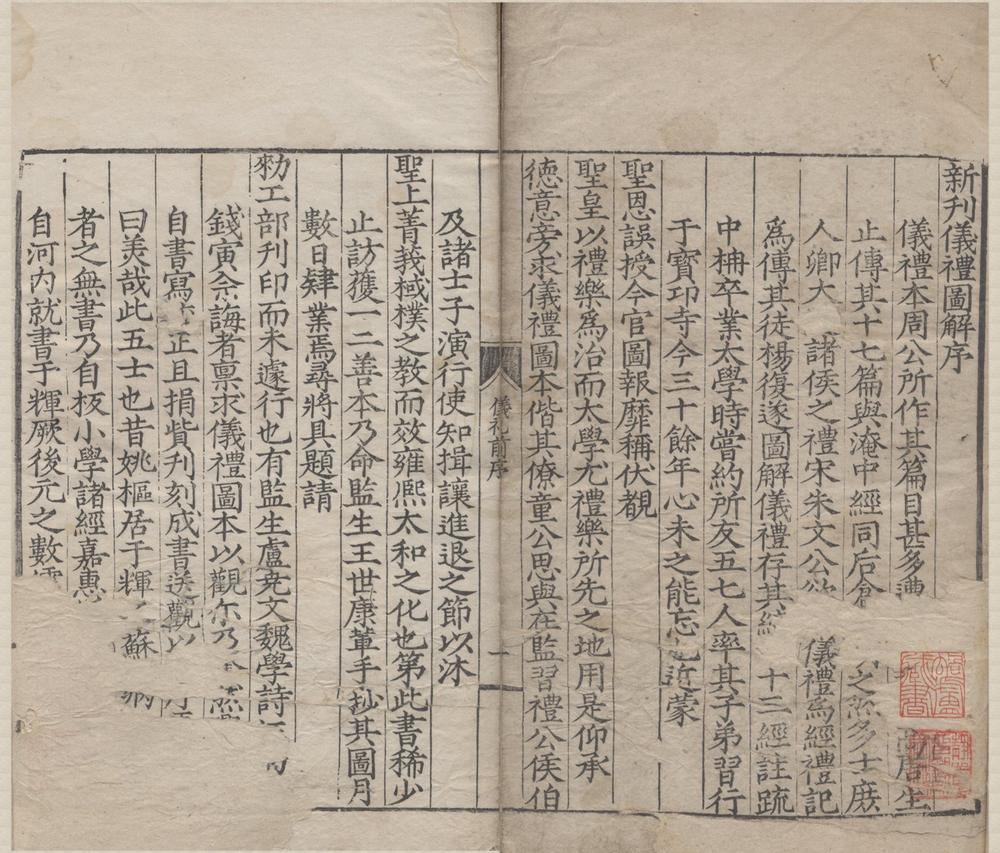 新刊儀禮圖解序
儀禮本周公所作其篇目甚多遭 高唐生
止傳其十七篇與淹中經同后倉 之然多士庶
人卿大 諸侯之禮宋朱文公欲 儀禮爲經禮記
爲傳其徒楊復遂圖解儀禮存其 十三經註疏
中柟卒業太學時嘗約所友五七人率其子弟習行
于寶邛寺今三十餘年心未之能忘 近蒙
聖恩誤授今官圖報靡稱伏覩
聖皇以禮樂爲治而太學尤禮樂所先之地用是仰承
德意旁求儀禮圖本偕其僚童公思與在監習禮公侯伯
儀礼前序
一
及諸士子演行使知揖讓進退之節以沐
聖上菁莪棫樸之教而效雍熈太和之化也第此書稀少
止訪獲一二善本乃命監生王世康軰手抄其圖月
數日肄業焉尋將具題請
勑工部刊印而未遽行也有監生盧尭文魏學詩
錢寅余誨者禀求儀禮圖本以觀 乃
自書寫 正且捐貲刋刻成書送觀
曰美哉此五士也昔姚樞居于輝 蘇
者之無書乃自板小學諸經嘉惠
自河內就書于輝厥後元之數